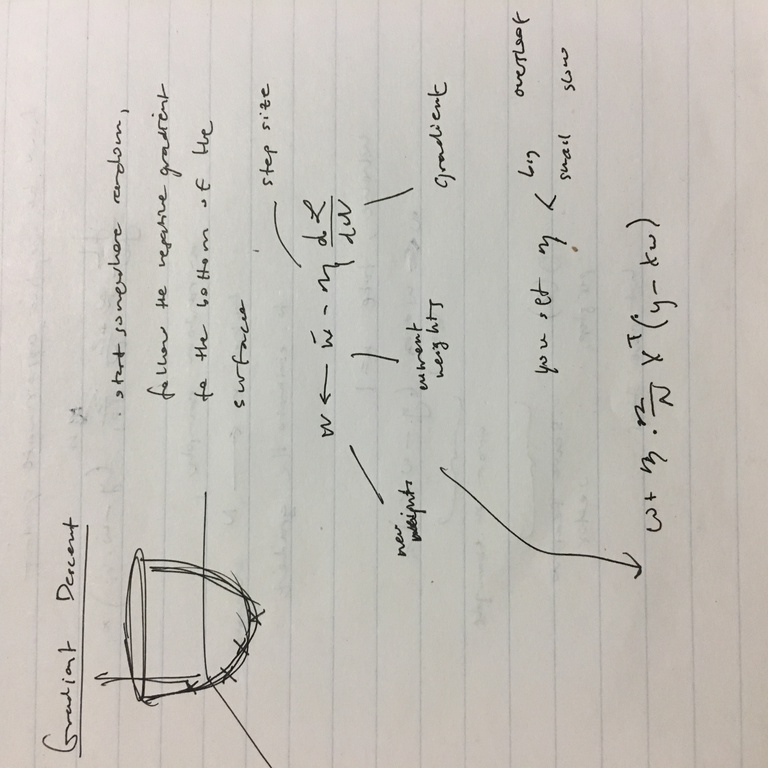 Gradient Descent
. start somewhere random,
follow the negative gradient
to the bottom of the
surface
step size
w ← w̄ - η dL/dw
new weights
current weights
gradient
you set η < big overshoot
small slow
w + η · 2/N X^T (y - Xw)